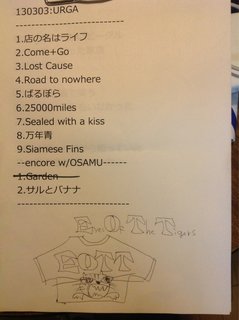 130303:URGA
--------------------
1.店の名はライフ
2.Come+Go
3.Lost Cause
4.Road to nowhere
5.ぱるぽら
6.25000miles
7.Sealed with a kiss
8.万年青
9.Siamese Fins
--encore w/OSAMU------
1.Garden
2.サルとバナナ
Eyes Of The Tigers
EOTT